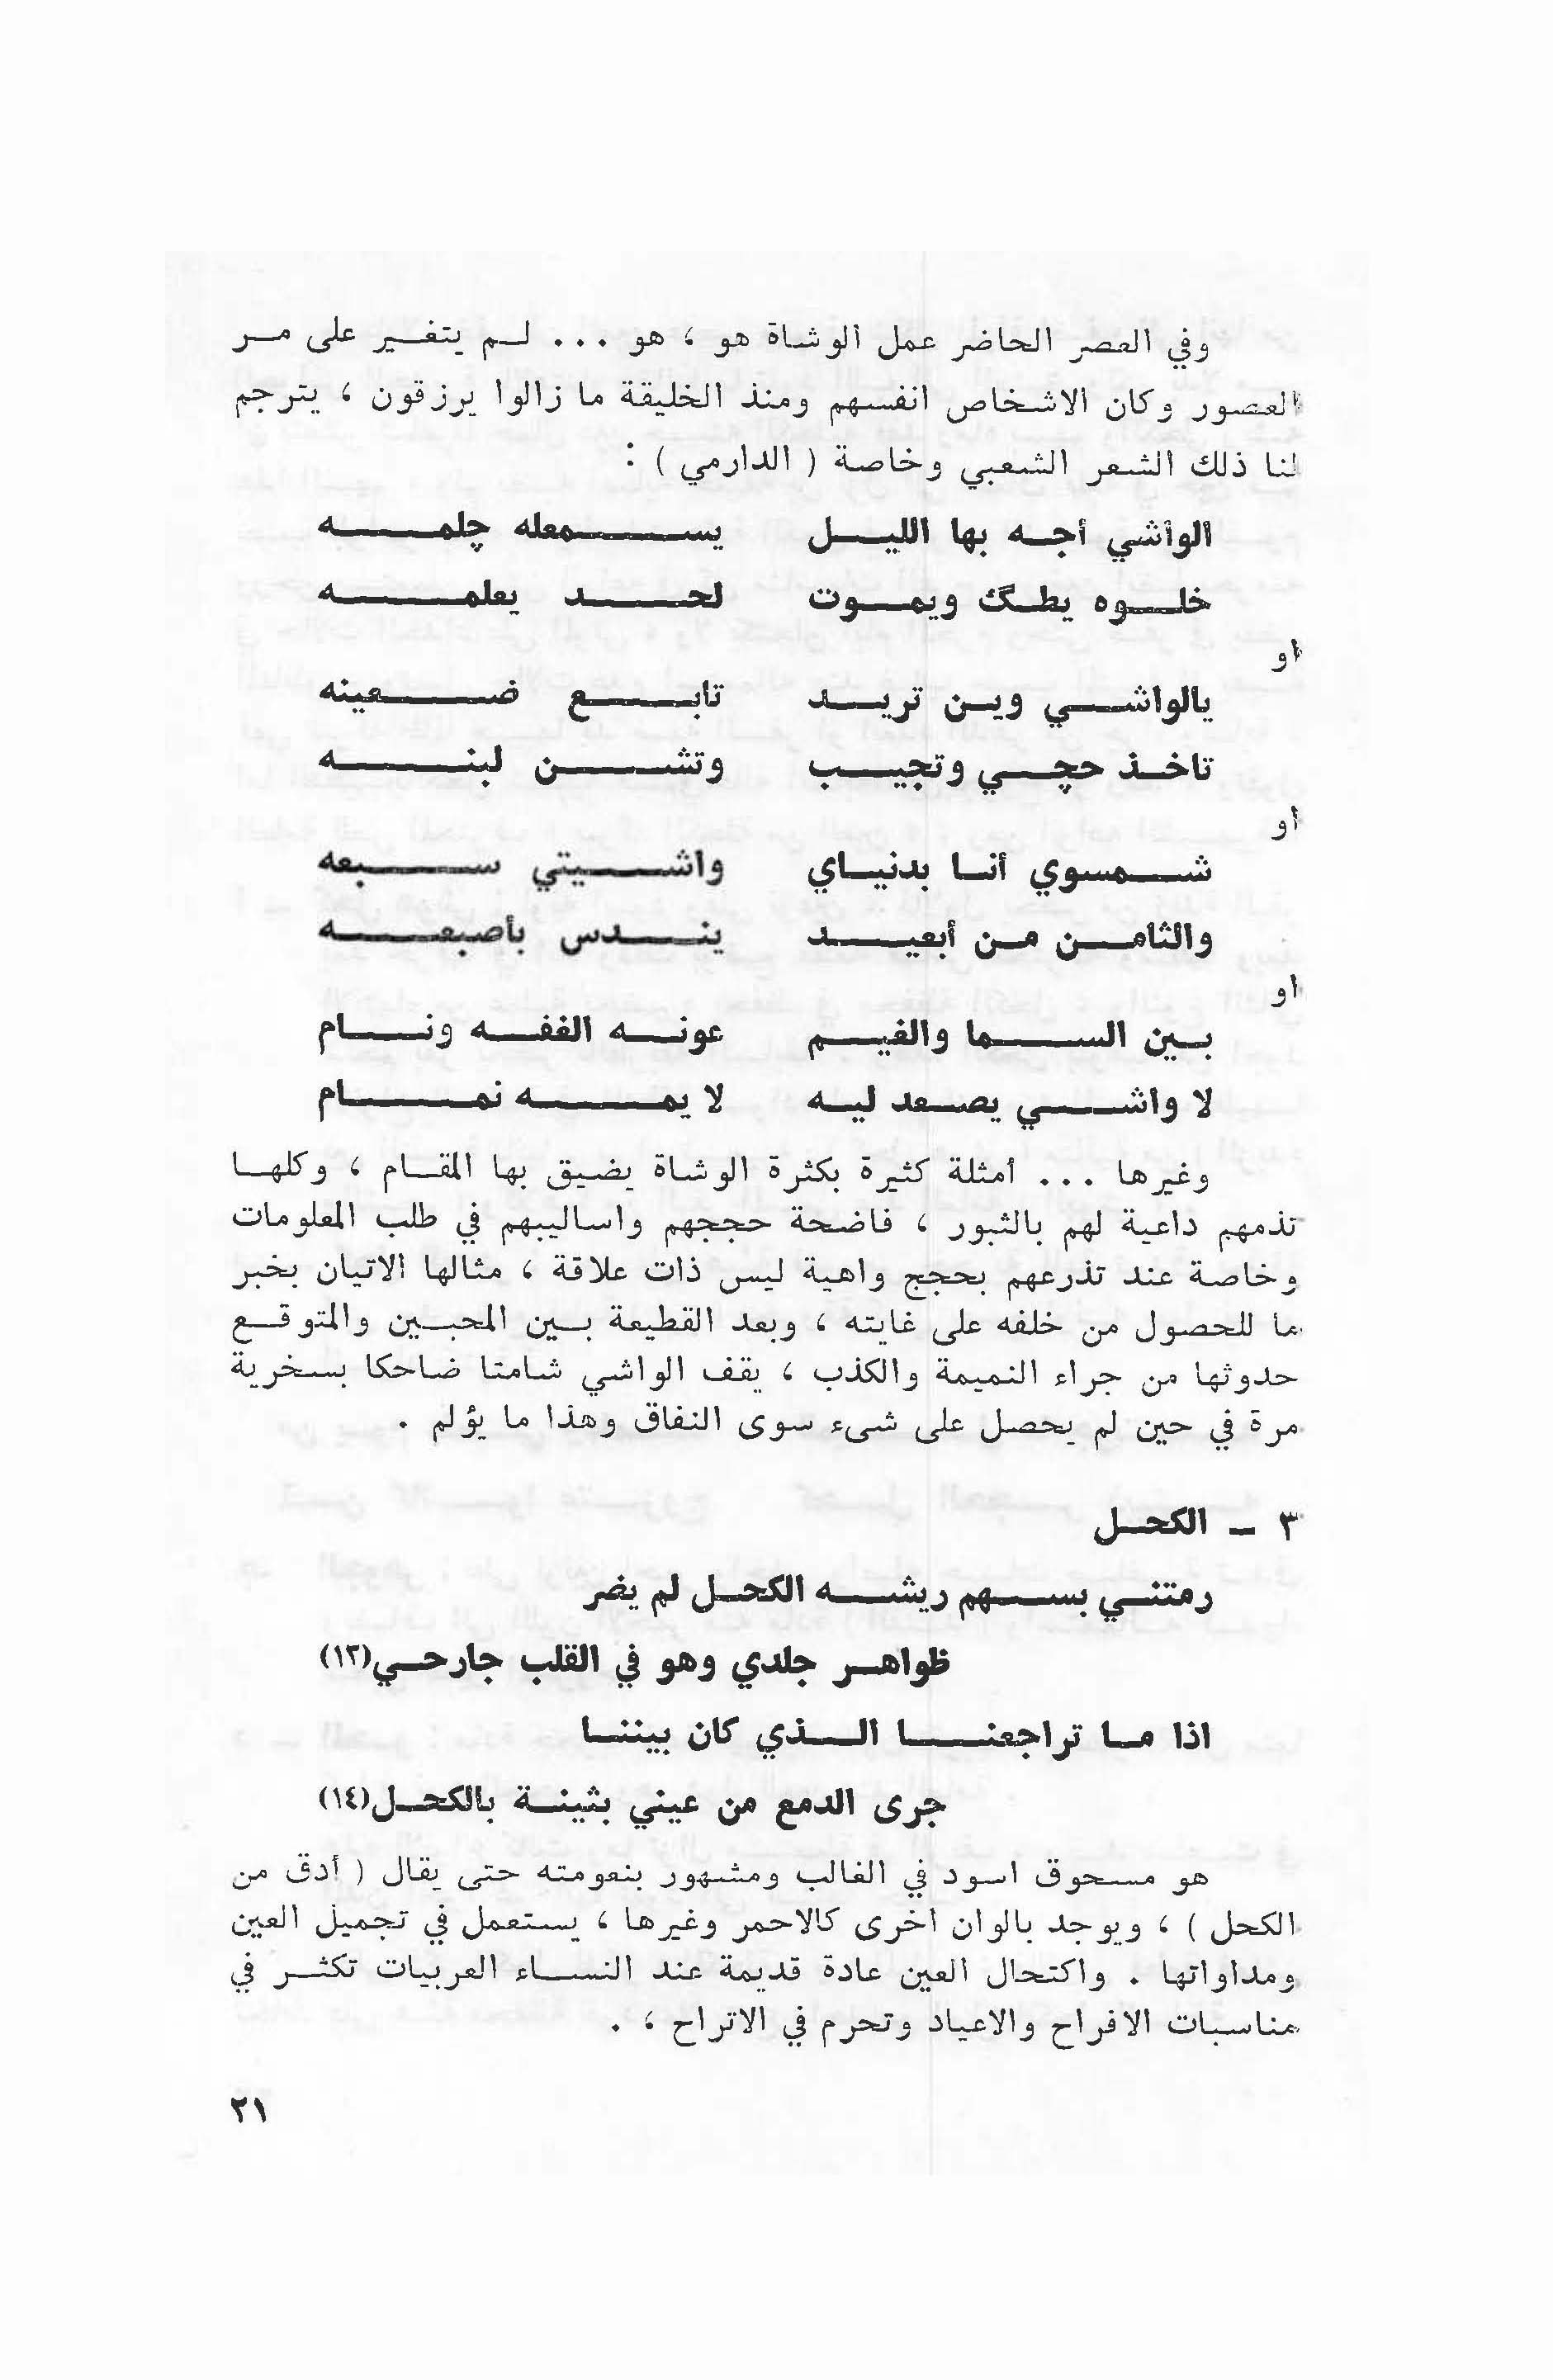 وفي العصر الحاضر عمل الوشاة هو ، هو ... لم يتغير على مر
العصور وكان الاشخاص انفسهم ومنذ الخليقة ما زالوا يرزقون ، يترجم
لنا ذلك الشعر الشعبي وخاصة ( الدارمي ) :
الواشي أجه بها الليل يسمعله چلمه
خلوه يطگ ويموت لحد يعلمه
او
يالواشي وين تريد تابع ضعينه
تاخذ حچي وتجيب وتشن لبنه
او
شمسوي أنا بدنياي واشيتي سبعه
والثامن من أبعيد يندس بأصبعه
او
بين السما والغيم عونه الغفه ونام
لا واشي يصعد ليه لا يمه نمام
وغيرها ... أمثلة كثيرة بكثرة الوشاة يضيق بها المقام ، وكلها
تذمهم داعية لهم بالثبور ، فاضحة حججهم واساليبهم في طلب المعلومات
وخاصة عند تذرعهم بحجج واهية ليس ذات علاقة ، مثالها الاتيان بخبر
ما للحصول من خلفه على غايته ، وبعد القطيعة بين المحبين والمتوقع
حدوثها من جراء النميمة والكذب ، يقف الواشي شامتا ضاحكا بسخرية
مرة في حين لم يحصل على شىء سوى النفاق وهذا ما يؤلم .
٣ - الكحل
رمتني بسهم ريشه الكحل لم يضر
ظواهر جلدي وهو في القلب جارحي(١٣)
اذا ما تراجعنا الذي كان بيننا
جرى الدمع من عيني بثينة بالكحل(١٤)
هو مسحوق اسود في الغالب ومشهور بنعومته حتى يقال ( أدق من
الكحل ) ، ويوجد بالوان اخرى كالاحمر وغيرها ، يستعمل في تجميل العين
ومداواتها . واكتحال العين عادة قديمة عند النساء العربيات تكثر في
مناسبات الافراح والاعياد وتحرم في الاتراح ، .
٢١